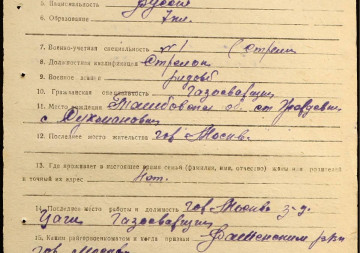 5. Национальность Русский
6. Образование 7 кл.
7. Военно-учетная специальность №1 (Стрелк
8. Должностная квалификация Стрелок
9. Военное звание рядовой
10. Гражданская специальность Газосварщик
11. Место рождения обл. ст.
с.
12. Последнее место жительства гор. Москва
13. Где проживает в настоящее время семья (фамилия, имя, отчество) жены или родителей
и точный их адрес Нет.
14. Последнее место работы и должность гор. Москва з-д
Газосварщик
15. Каким райгорвоенкоматом и когда призван
гор. Москва